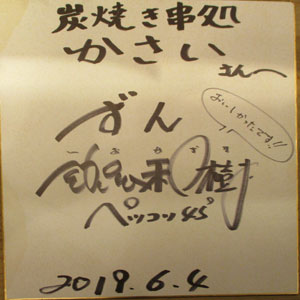 炭焼き串処
かさい
さんへ
おいしかったです!!
ずん
飯尾和樹
ペッコリ45°
2019.6.4